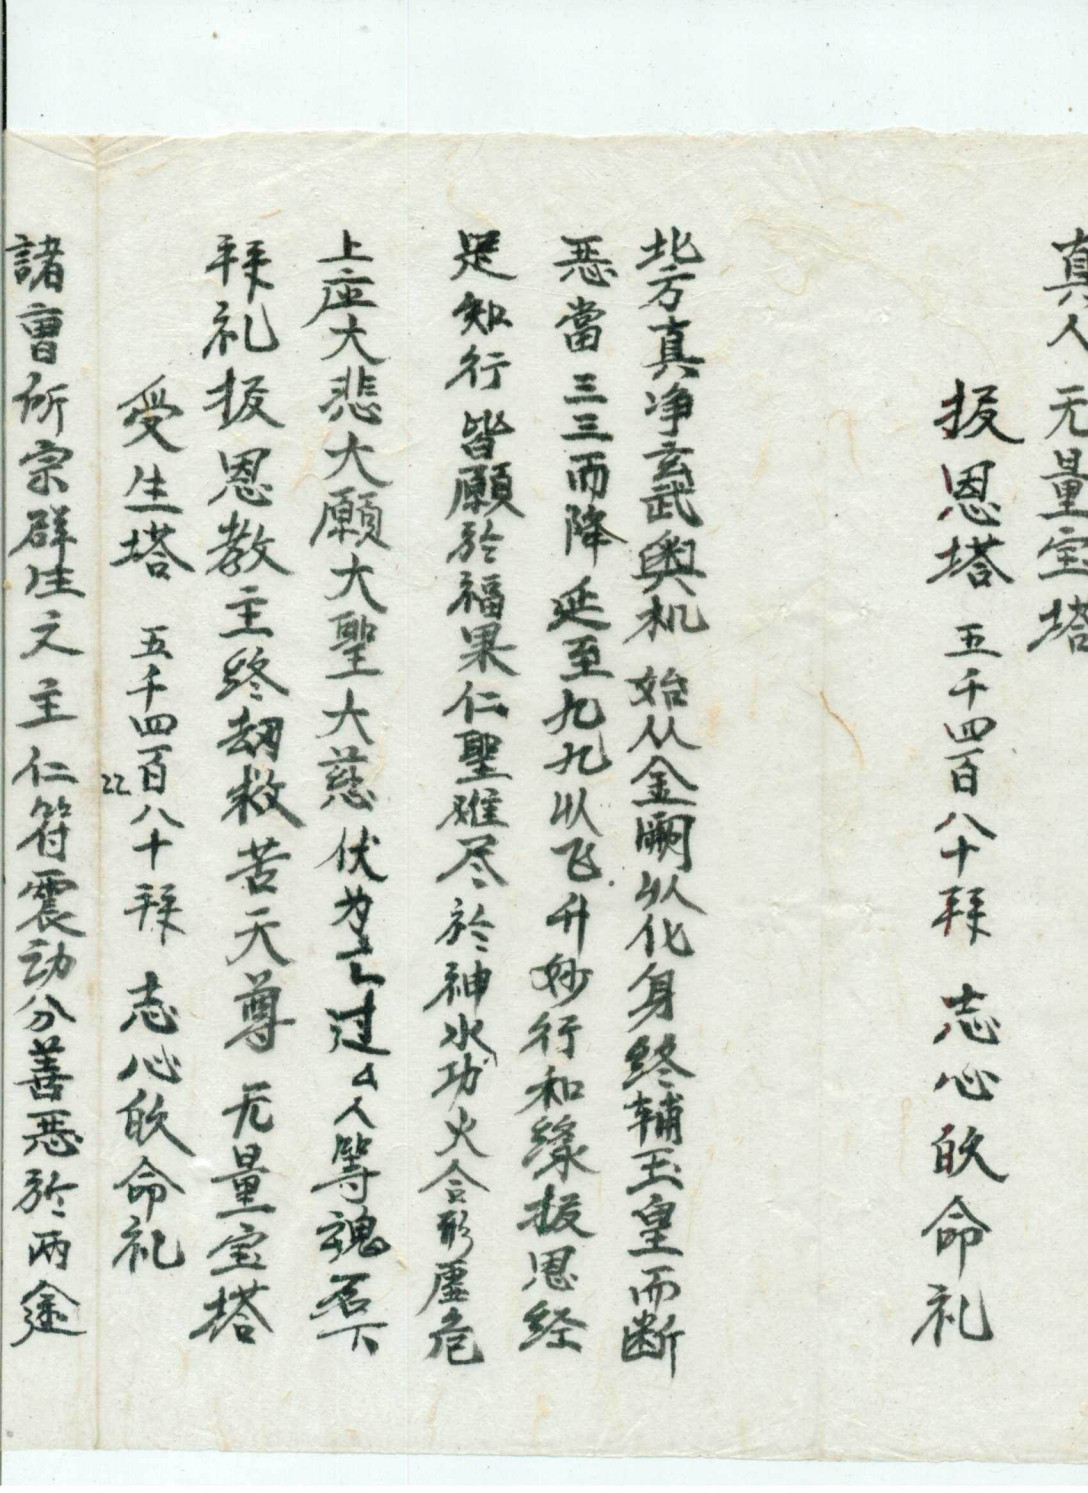 真人 无量宝塔
报恩塔 五千四百八十拜 志心皈命礼
北方真净玄武奥机 始从金阙以化身终辅玉皇而断
恶當三三而降延至九九以飞升妙行和缘报恩经
是知行皆願於福果仁聖难尽於神水功火合形虚危
上座大悲大願大聖大慈 伏为亡过 人等魂名下
拜礼报恩教主终劫救苦天尊 无量宝塔
受生塔 五千四百八十拜 志心皈命礼
22
諸曹所宗群生之主仁符震动分善恶於两途